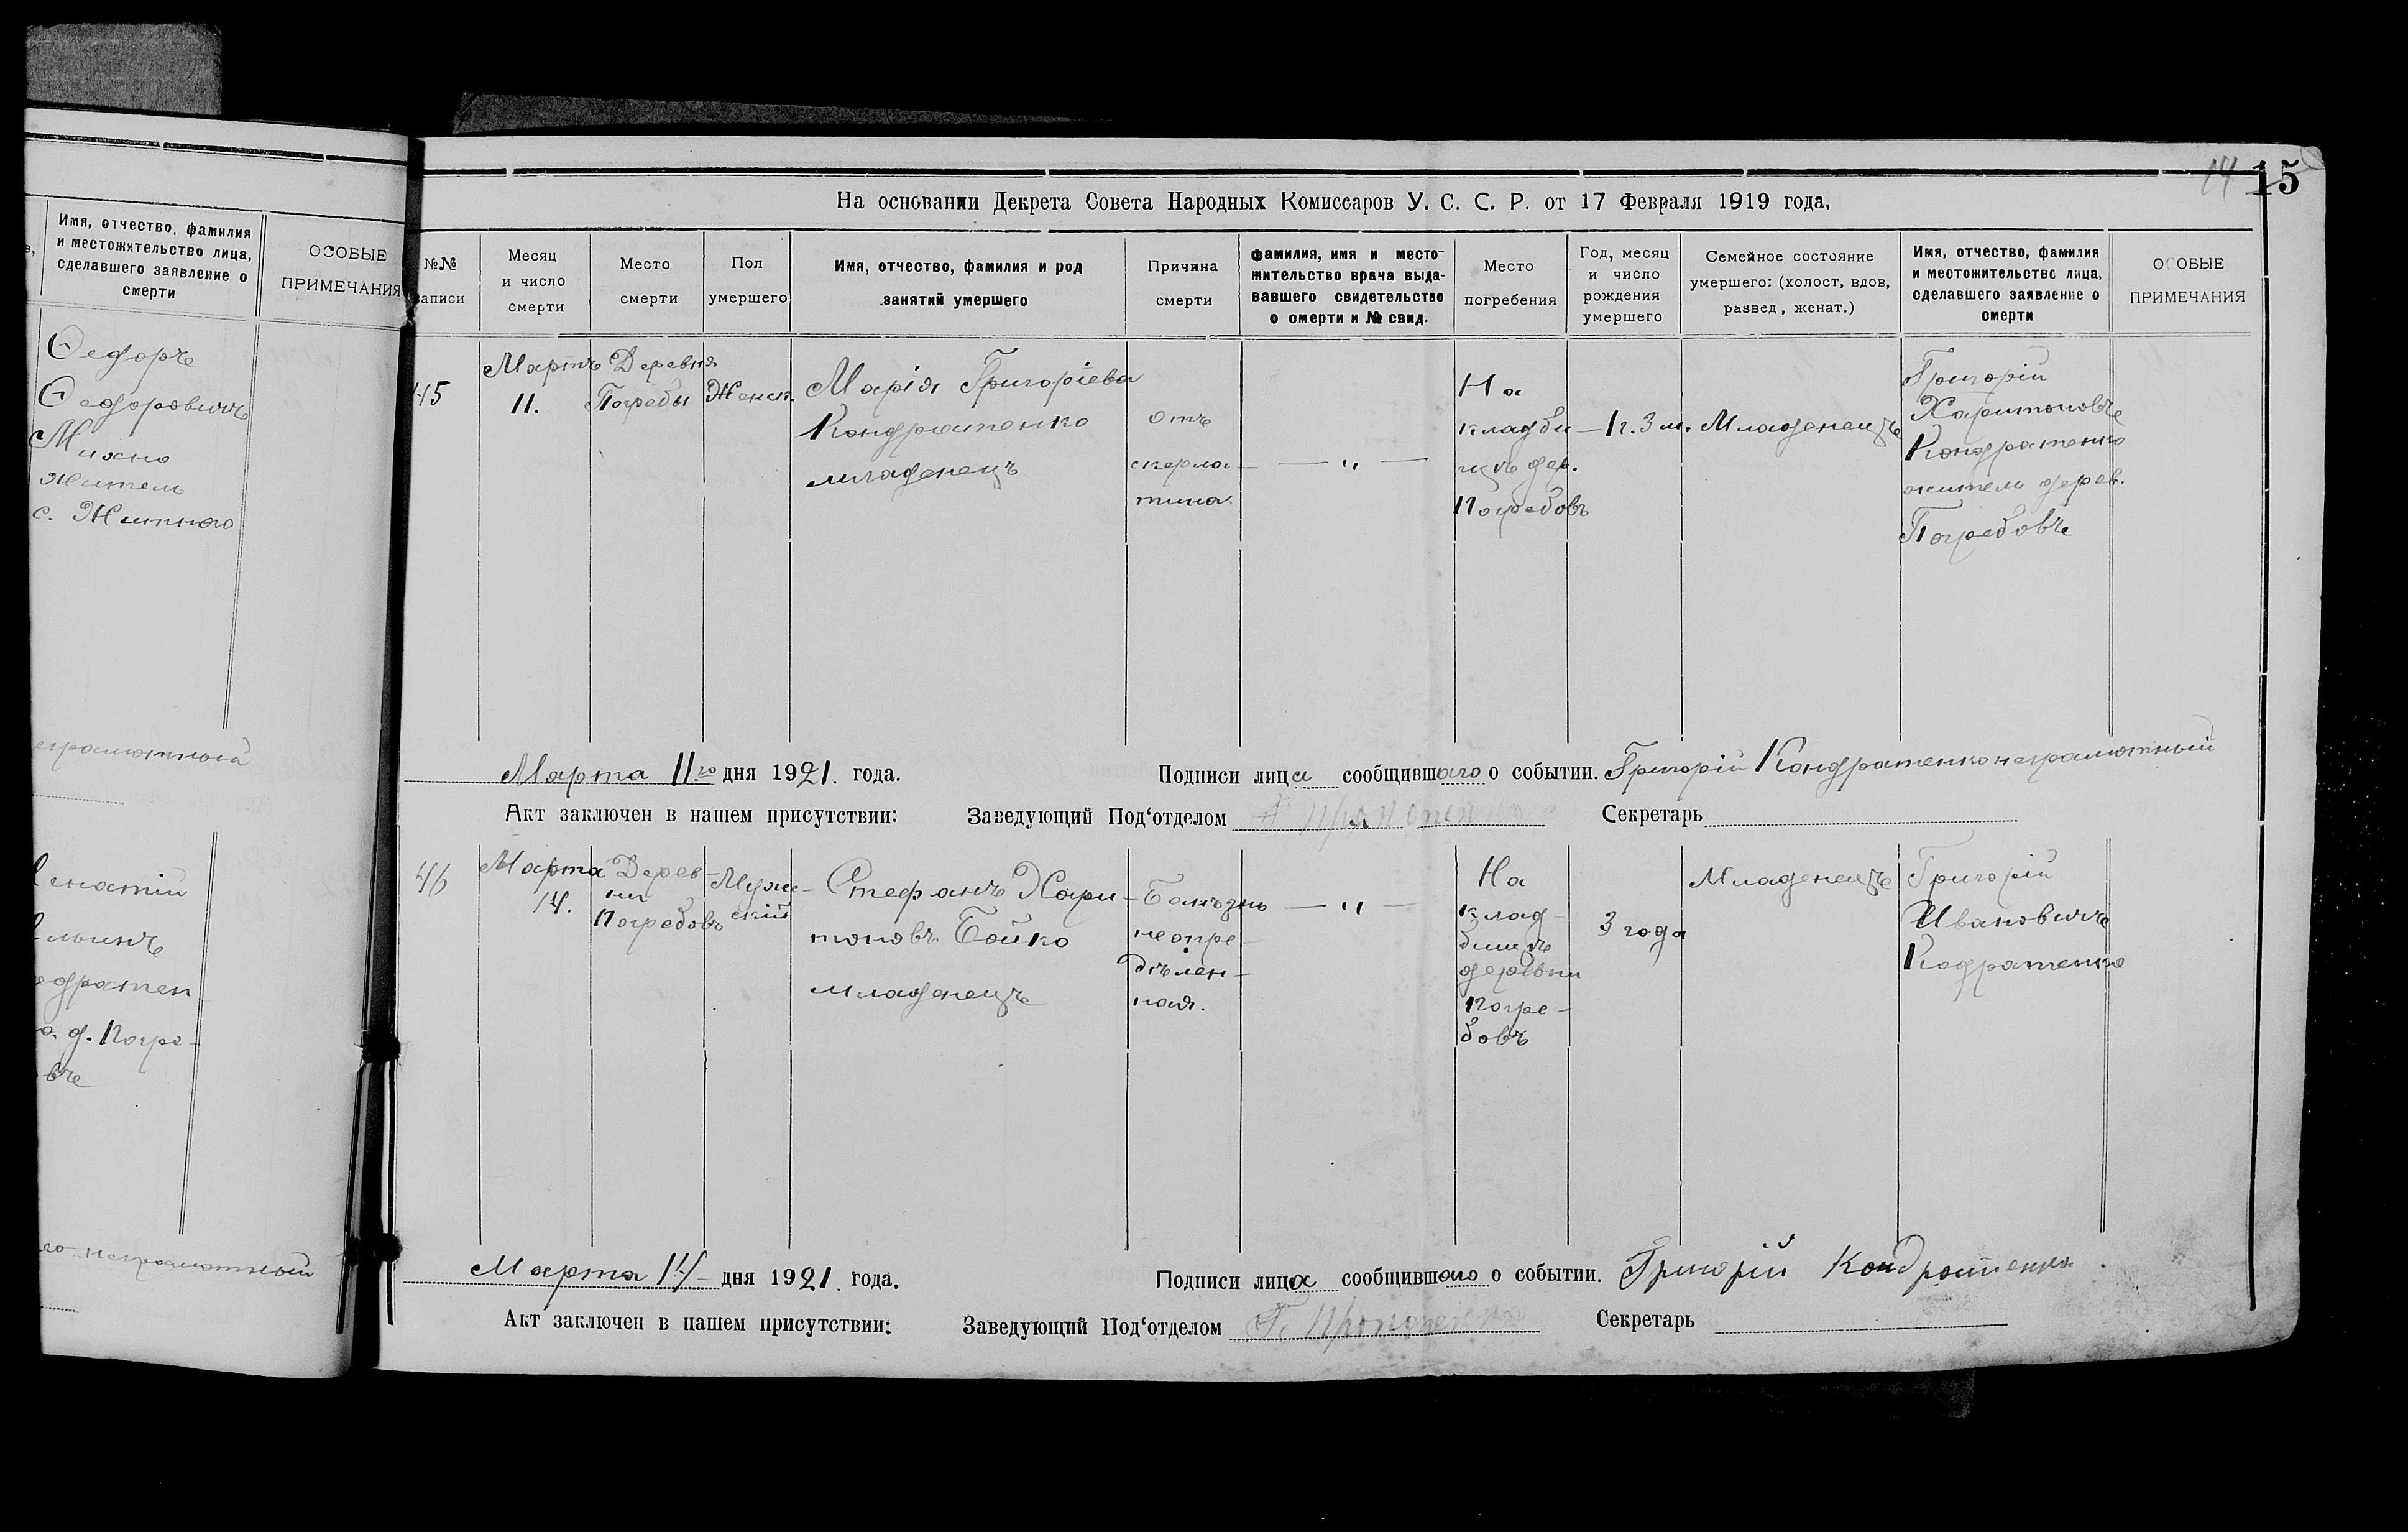 Имя, отчество, фамилия
и местожительство лица,
сделавшего заявление о
смерти
ОСОБЫЕ
ПРИМЕЧАНИЯ
Ѳедоръ
Ѳедоровичъ
Михно
житель
с. Житного
14 15
На основании Декрета Совета Народных Комиссаров У. С. С. Р. от 17 Февраля 1919 года.
№№
записи
Месяц
и число
смерти
Место
смерти
Пол
умершего
Имя, отчество, фамилия и род
занятий умершего
Причина
смерти
фамилия, имя и место-
жительство врача выда-
вавшего свидетельство
о смерти и № свид.
Место
погребения
Год, месяц
и число
рождения
умершего
Семейное состояние
умершего: (холост, вдов,
развед, женат.)
Имя, отчество, фамилия
и местожительство лица,
сделавшего заявление о
смерти
ОСОБЫЕ
ПРИМЕЧАНИЯ
45
Мартъ
11.
Деревня
Погребы
Женск.
Марія Григоріева
Кондратенко
младенецъ
отъ
скарла-
тина
— „ —
На
кладби-
щѣ дер.
Погребовъ
1 г. 3 м.
Младенецъ
Григорій
Харитоновъ
Кондратенко
житель дерев.
Погребовъ
Марта 11го дня 1921. года.
Подписи лица сообщившаго о событии. Григорій Кондратенко неграмотный
Акт заключен в нашем присутствии:
Заведующий Под‘отделом
Секретарь
46
Марта
14.
Дерев-
ни
Погребовъ
Муже-
скій
Стефанъ Хари-
тоновъ Бойко
младенецъ
Болѣзнь
неопре-
дѣлен-
ная.
— „ —
На
клад-
бищѣ
деревни
Погре-
бовъ
3 года
Младенецъ
Григорій
Ивановичъ
Кодратенко
Марта 14 дня 1921. года.
Подписи лица сообщившаго о событии. Григорій Кондратенко.
Акт заключен в нашем присутствии:
Заведующий Под‘отделом
Секретарь